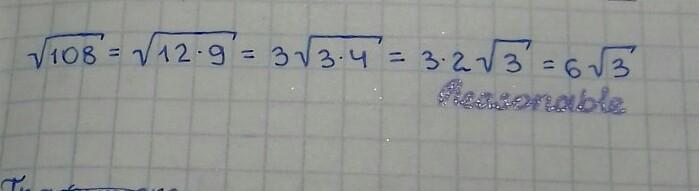 √108 = √12·9 = 3√3·4 = 3·2√3 = 6√3
Reasonable